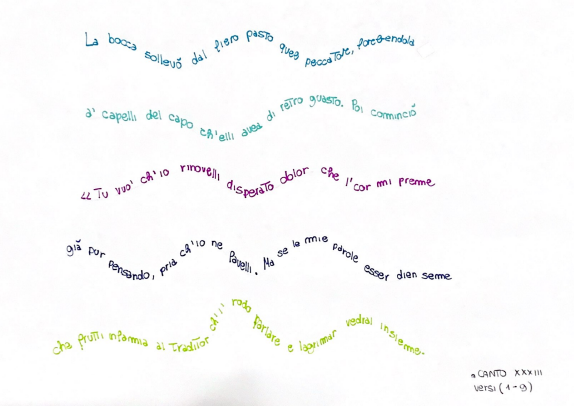 La bocca sollevò dal fiero pasto quel peccatore, forbendola
a' capelli del capo ch'elli avea di retro guasto. Poi cominciò
“ Tu vuo' ch'io rinovelli disperato dolor che l'cor mi preme
già pur pensando, pria ch'io ne favelli. Ma se le mie parole esser dien seme
che frutti infamia al traditor ch'i' rodo parlare e lagrimar vedrai insieme.
CANTO XXXIII
versi (1-9)